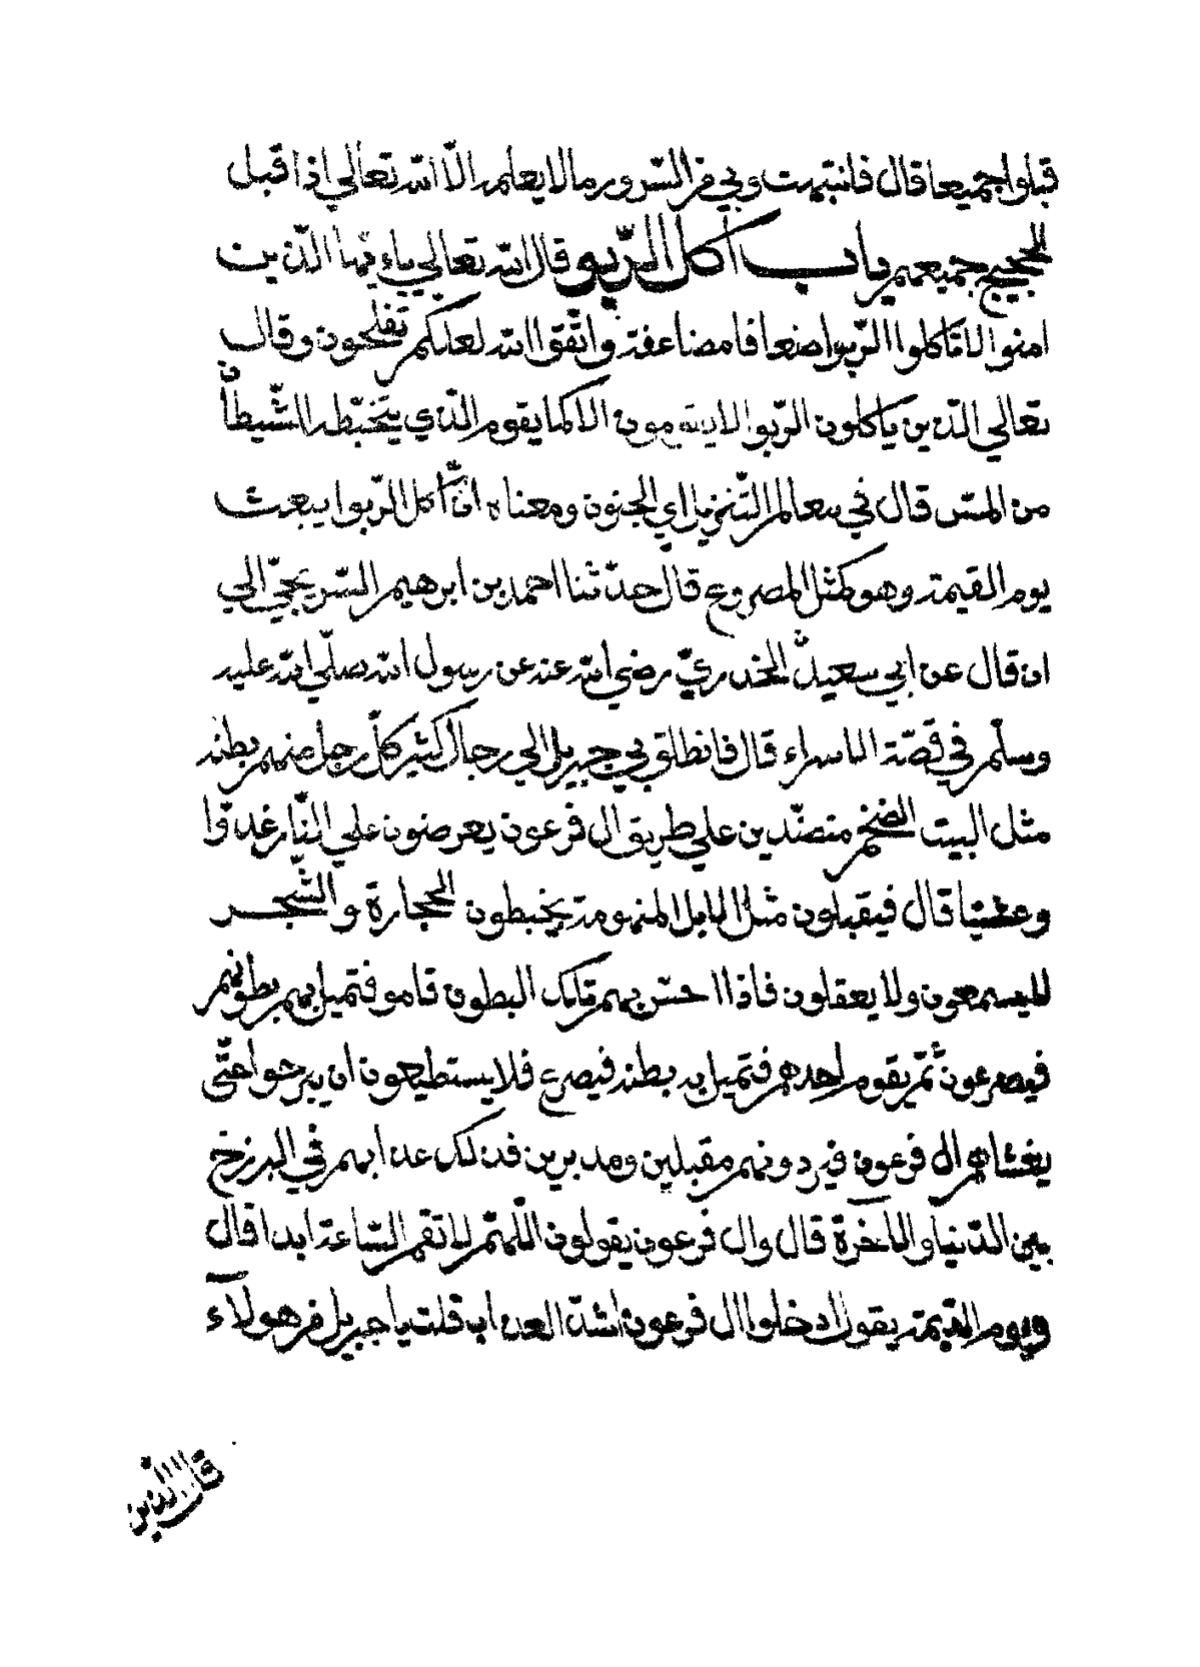 قبلوا جميعا قال فانتبهت وبي من السّرور ما لا يعلمه الّا الله تعالي اذا قبل
الحجيج جميعهم باب اكل الرّبو قال الله تعالي ياءيّها الّذين
امنوا لا تاكلوا الرّبوا ضعافا مضاعفة واتّقوا الله لعلكم تفلحون وقال
تعالي الّذين ياكلون الرّبوا لا يقومون الا كما يقوم الّذي يتخبّطه الشّيطاّن
من المسّ قال في معالم التّنزيل اي الجنون ومعناه انّ اكل الرّبوا يبعث
يوم القيمة وهو كمثل المصروع قال حدّثنا احمد بن ابرهيم السّريحيّ الي
ان قال عن ابي سعيد ن الخدريّ رضي الله عنه عن رسول الله صلّي الله عليه
وسلّم في قصّة الاسراء قال فانطلق بي جبريل الي رجال كثير كلّ رجل منهم بطنه
مثل البيت الضخم متصدّين علي طريق ال فرعون يعرضون علي النّار غدوّا
وعشيّا قال فيقبلون مثل الابل المنهومة يخبطون الحجارة والشّجر
لا يسمعون ولا يعقلون فاذا احسّ بهم تلك البطون قامو فتميل بهم بطونهم
فيصرعون ثمّ يقوم احدهم فتميل به بطنه فيصرع فلا يستطيعون ان يبرحوا حتّي
يغشاهم ال فرعون فيردونهم مقبلين ومدبرين فذلك عذابهم في البرزخ
بين الدّنيا والاخرة قال وال فرعون يقولون اللّهمّ لا تقم السّاعة ابدا قال
ويوم القيمة يقول ادخلوا ال فرعون اشدّ العذاب قلت يا جبريل من هولآء
قال الّذين